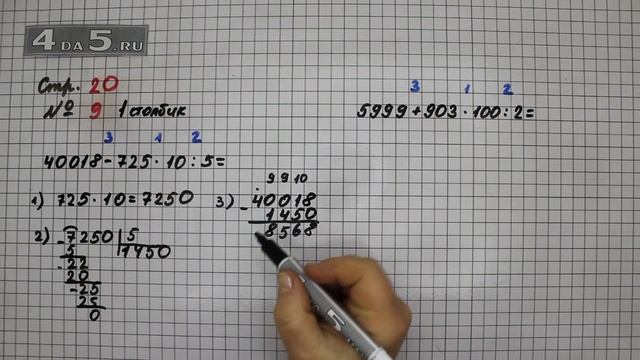 4DA5.RU
Стр. 20
№ 9 1 столбик
3 1 2
40018-725·10:5=
1) 725·10=7250
2) -7250 | 5
5 1450
-22
20
-25
25
0
3) 9 9 10
-40018
1450
8568
3 1 2
5999+903·100:2=
5